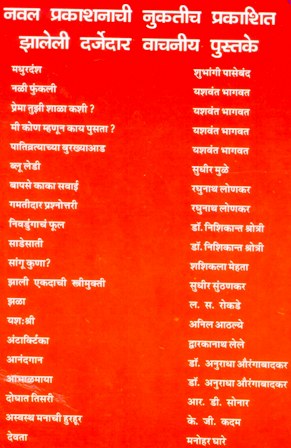 नवल प्रकाशनाची नुकतीच प्रकाशित
झालेली दर्जेदार वाचनीय पुस्तके
मधुरदंश शुभांगी पासेबंद
नळी फुंकली यशवंत भागवत
प्रेमा तुझी शाळा कशी ? यशवंत भागवत
मी कोण म्हणून काय पुसता ? यशवंत भागवत
पातिव्रत्याच्या बुरख्याआड यशवंत भागवत
ब्लू लेडी सुधीर मुळे
बापसे काका सवाई रघुनाथ लोणकर
गमतीदार प्रश्नोत्तरी रघुनाथ लोणकर
निवडुंगाचं फूल डॉ. निशिकान्त श्रोत्री
साडेसाती डॉ. निशिकान्त श्रोत्री
सांगू कुणा? शशिकला मेहता
झाली एकदाची स्त्रीमुक्ती सुधीर सुंठणकर
झळा ल. स. रोकडे
यशःश्री अनिल आठल्ये
अंटार्क्टिका द्वारकानाथ लेले
आनंदगान डॉ. अनुराधा औरंगाबादकर
आभाळमाया डॉ. अनुराधा औरंगाबादकर
दोघात तिसरी आर. डी. सोनार
अस्वस्थ मनाची हुरहूर के. जी. कदम
देवता मनोहर घारे